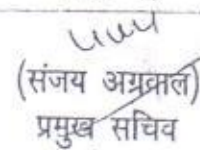 (संजय अग्रवाल)
प्रमुख सचिव